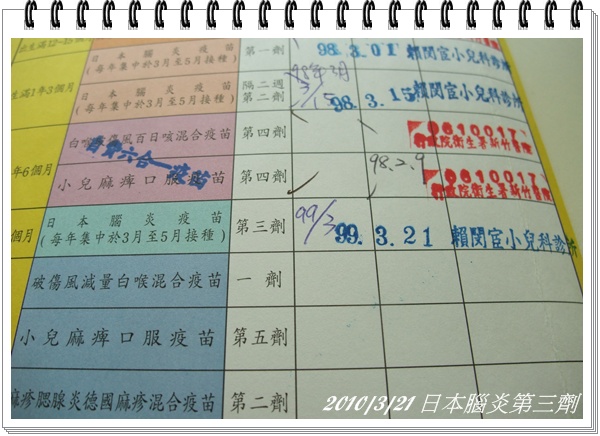 出生滿12-15個月
日本腦炎疫苗 第一劑 98.3.01 賴閔宦小兒科診所
(每年集中於3月至5月接種)
生滿1年3個月
日本腦炎疫苗 隔二週 第二劑 98年3月 3/15 98.3.15 賴閔宦小兒科診所
(每年集中於3月至5月接種)
白喉破傷風百日咳混合疫苗 第四劑 0610017
自費六合一疫苗 行政院衛生署新竹醫院
年6個月
小兒麻痺口服疫苗 第四劑 98.2.9 0610017
行政院衛生署新竹醫院
個月
日本腦炎疫苗 第三劑 99/3 99.3.21 賴閔宦小兒科診所
(每年集中於3月至5月接種)
破傷風減量白喉混合疫苗 一劑
小兒麻痺口服疫苗 第五劑
麻疹腮腺炎德國麻疹混合疫苗 第二劑
2010/3/21 日本腦炎第三劑